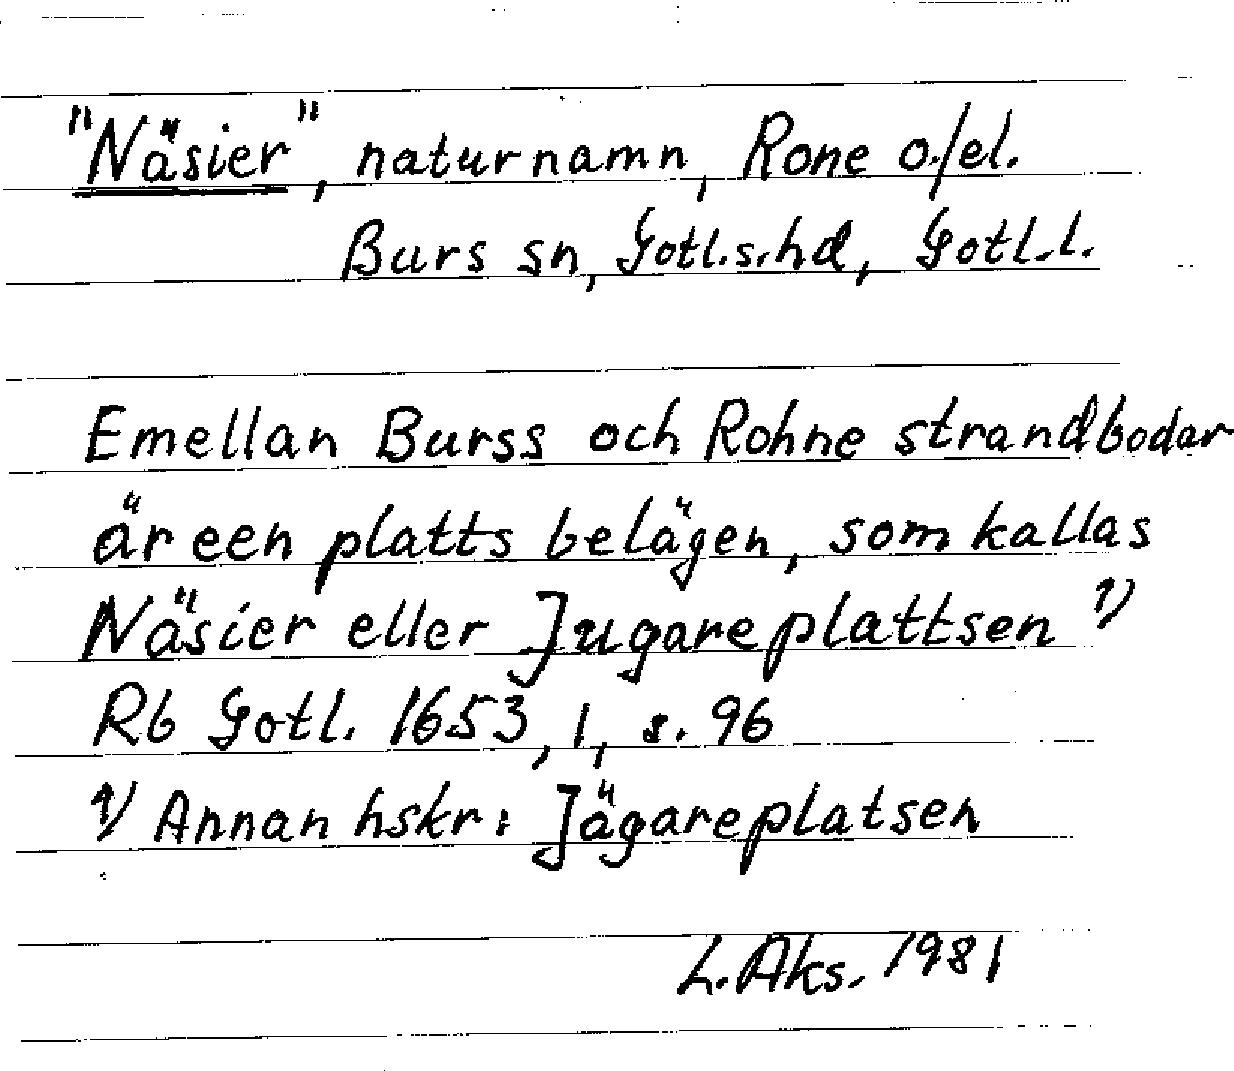 "Näsier", naturnamn, Rone o./el.
Burs sn, Gotl.s.hd, Gotl.l.
Emellan Burss och Rohne strandbodar
är een platts belägen, som kallas
Näsier eller Jugareplattsen 1)
Rb Gotl. 1653, 1, s. 96
1) Annan hskr: Jägareplatsen
L. Aks. 1981